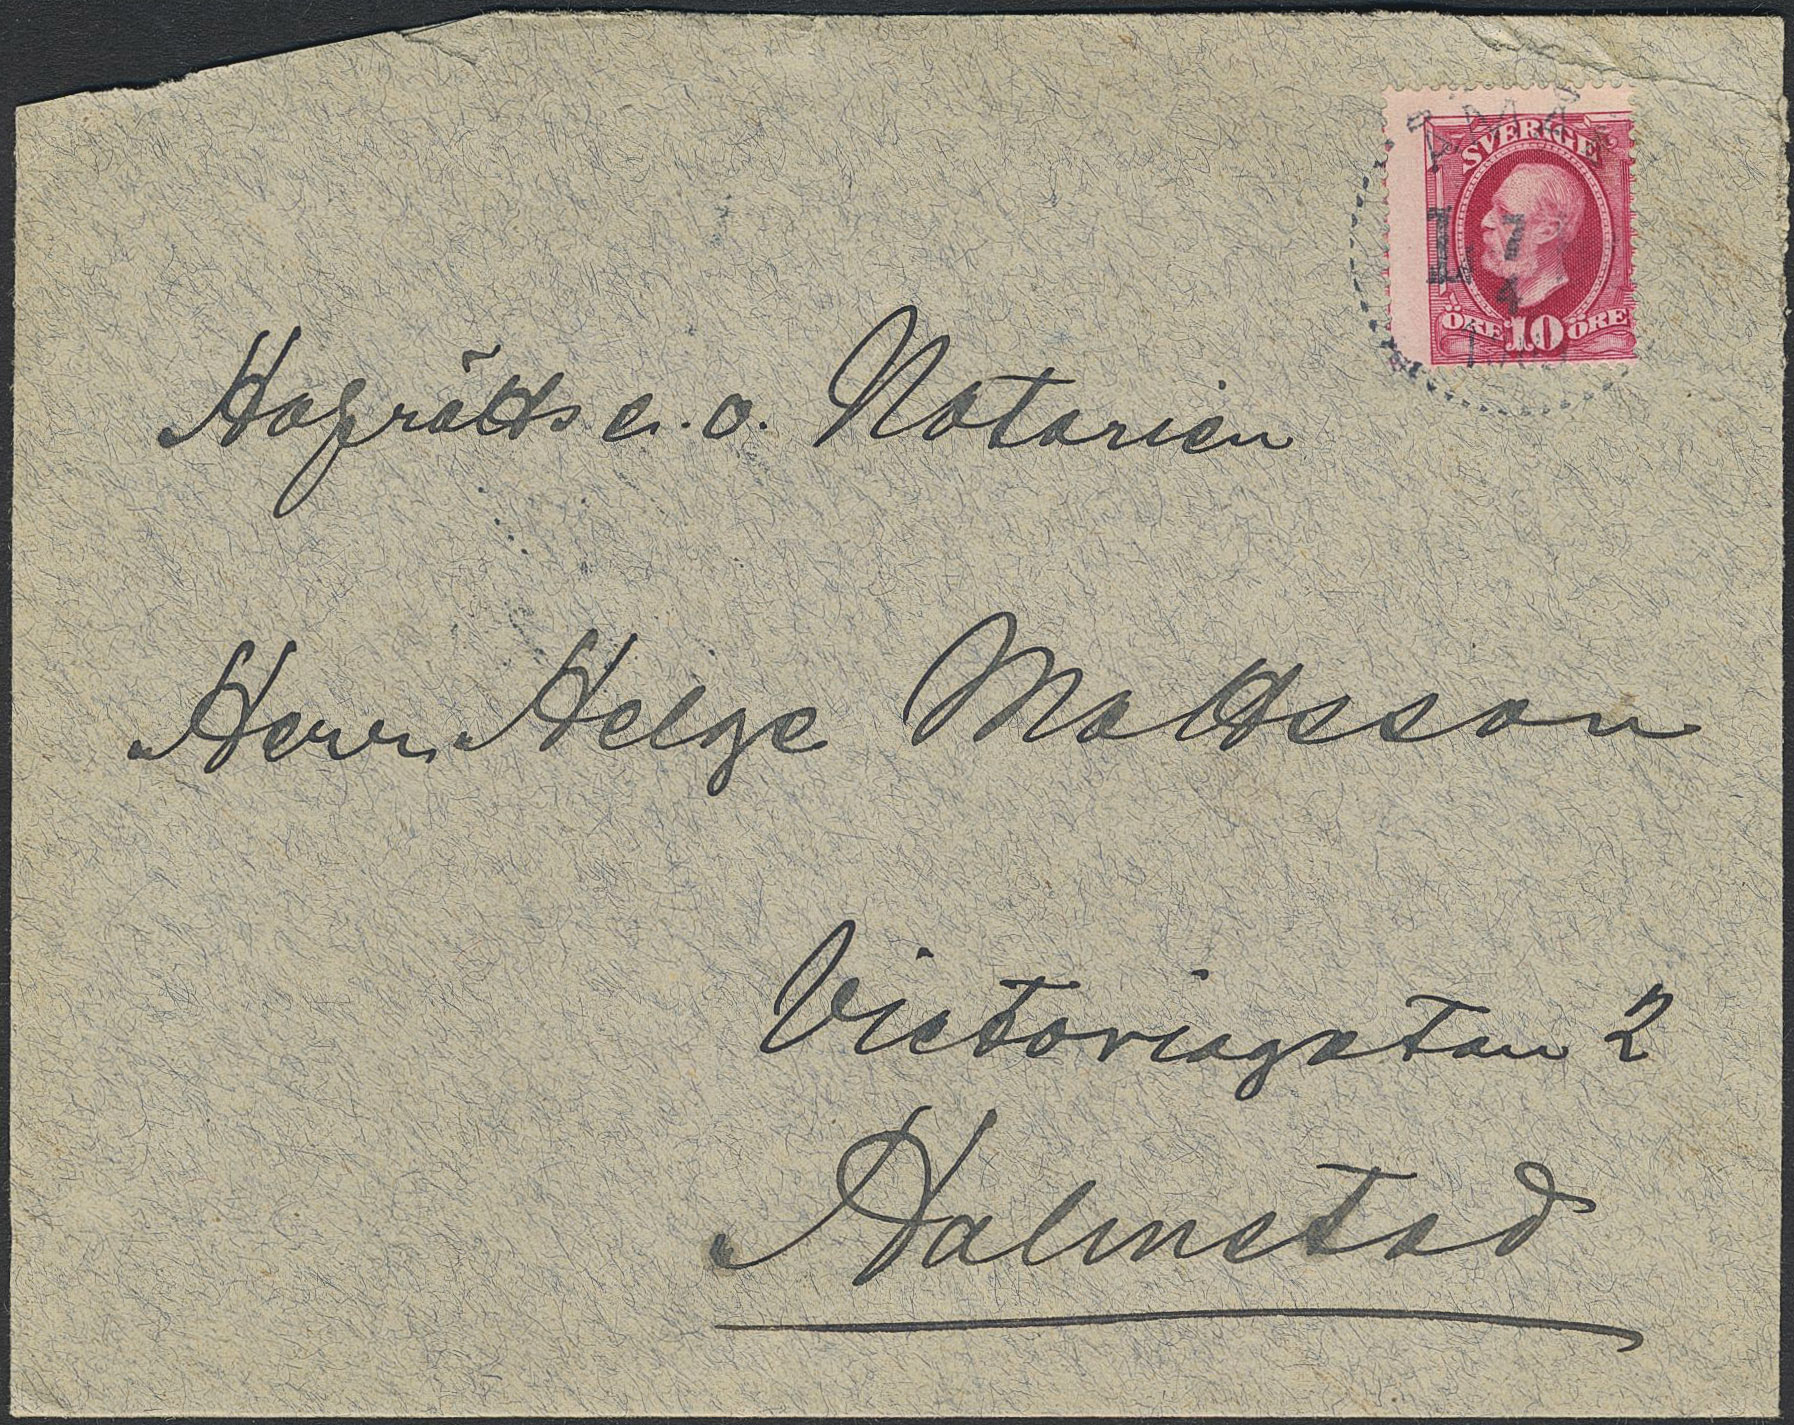 SVERIGE
ÖRE 10 ÖRE
L 7
4
Hofrätts e. o. Notarien
Herr Helge Mattsson
Victoriagatan 2
Halmstad